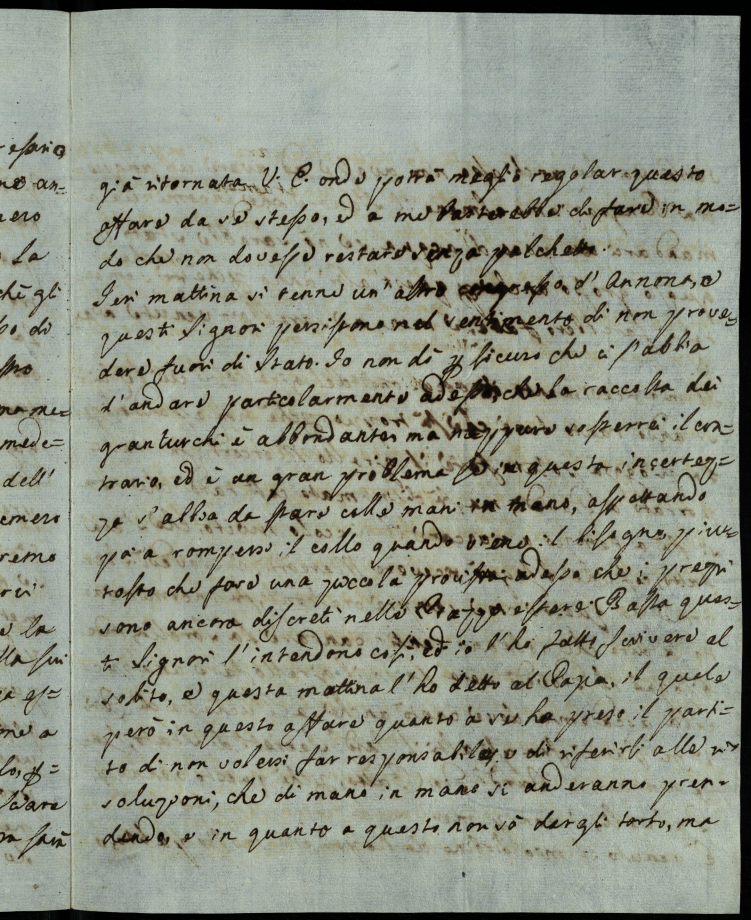 resario
ne an=
nero
la
chè gli
so di
stro
na me=
mede=
dell'
remo
e la
me a
lo, p=
sciare
già ritornata V. E. onde potrà meglio regolar questo
affare da se stesso, ed a me basterebbe di fare in mo=
do che non dovesse restare senza palchetto.
Ieri mattina si tenne un' altro congresso d'Annona, e
questi Signori persistono nel sentimento di non prove=
dere fuori di Stato. Io non dò p sicuro che ci s'abbia
d'andare particolarmente adesso, che la raccolta dei
granturchi è abbondante, ma neppure sosterrei il con=
trario, ed è un gran problema se in questa incertez=
za s'abbia da stare colle mani in mano, aspettando
poi a rompersi il collo quando viene il bisogno, piut=
tosto che fare una piccola provista adesso che i prezzi
sono ancora discreti nelle Piazze estere. Basta ques=
ti Signori l'intendono così, ed io l'hò fatto scrivere al
solito, e questa mattina l'ho detto al Papa, il quale
però in questo affare quanto a se ha preso il parti=
to di non volersi far responsabile, e di riferirsi alle ri=
soluzioni, che di mano in mano si anderanno pren=
dendo, e in quanto a questo non sò dargli torto, ma